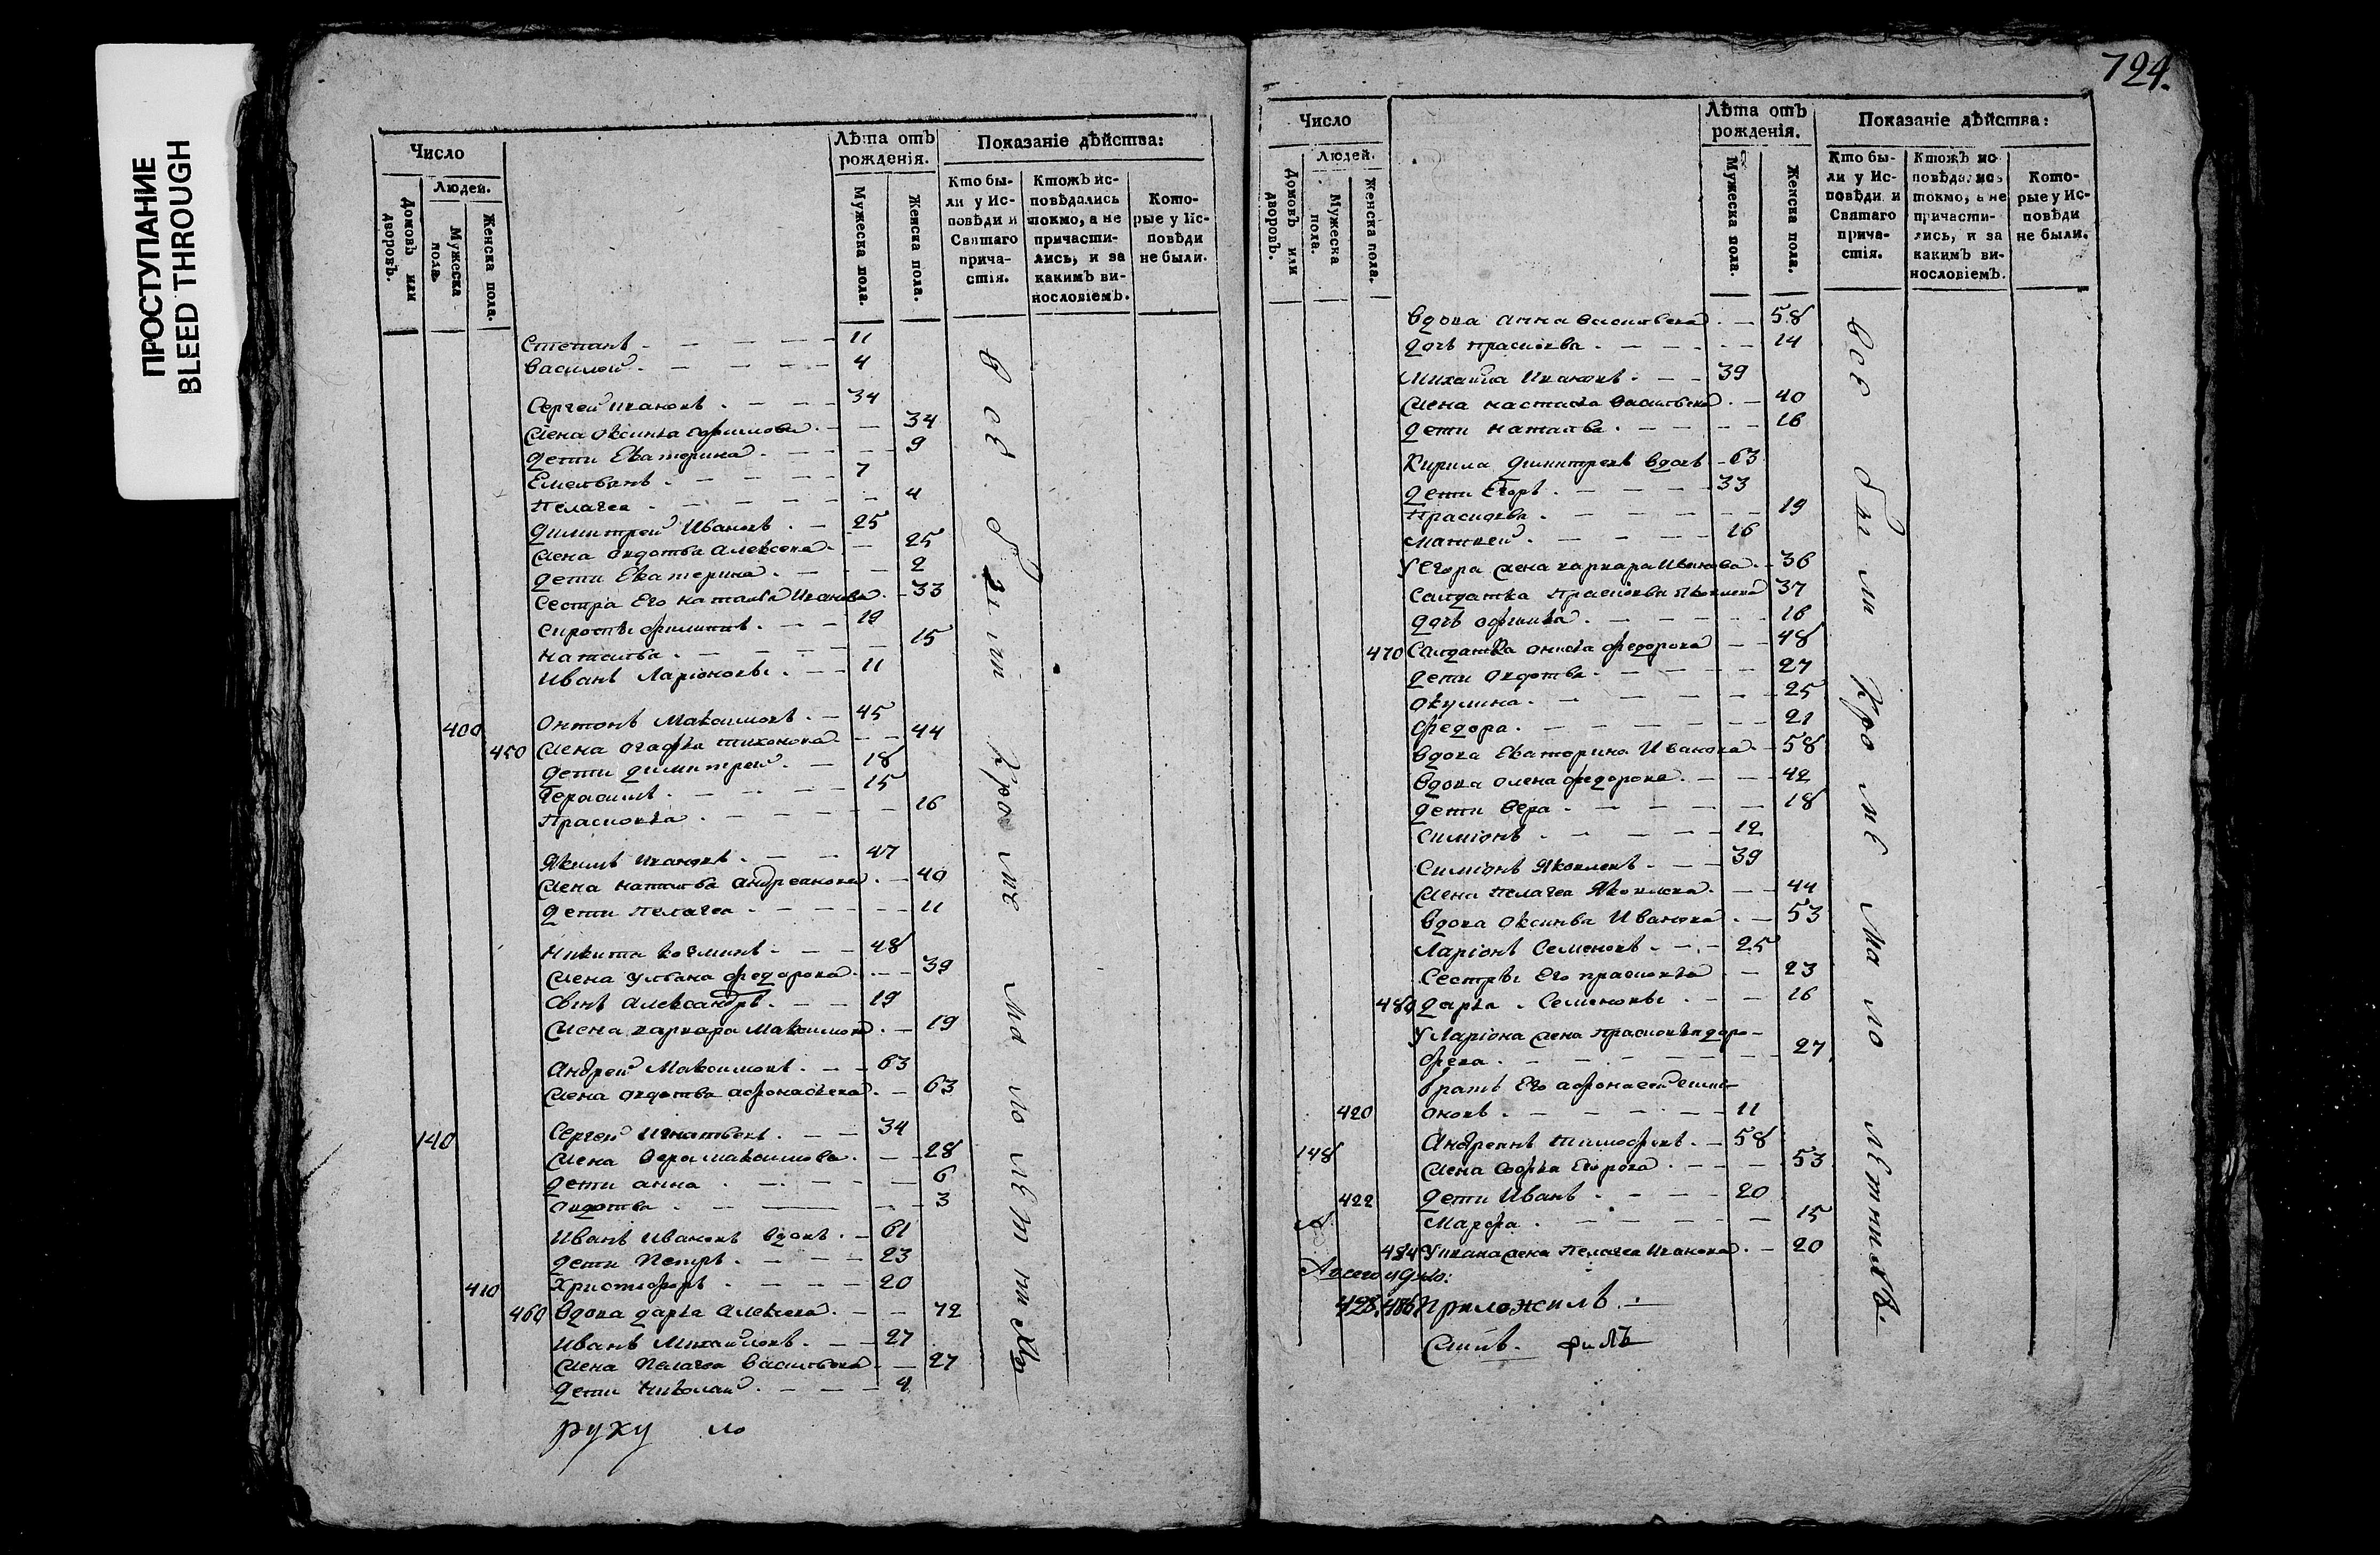 ПРОСТУПАНИЕ
BLEED THROUGH
Число
Людей.
Домовъ или дворовъ.
Мужеска пола.
Женска пола.
Лѣта отъ рожденія.
Мужеска пола.
Женска пола.
Показаніе дѣйства:
Кто бы-
ли у Ис-
повѣди и
Святаго
прича-
стія.
Ктожъ ис-
повѣдались
токмо, а не
причасти-
лись, и за
какимъ ви-
нословіемъ.
Кото-
рые у Ис-
повѣди
не были.
Степанъ 11
Василей 4
Сергей Ивановъ 34
Жена Оксинья Ефимова 34
Дети Екатерина 9
Емельянъ 7
Пелагея 4
Димитрей Ивановъ 25
Жена Овдотья Алексеева 25
Дети Екатерина 2
Сестра Его Наталья Иванова 33
Сироты Филиппъ 19
Наталья 15
Иванъ Ларіоновы 11
400 Онтонъ Максимовъ 45
450 Жена Огафья Тихонова 44
Дети Димитрей 18
Герасимъ 15
Прасковья 16
Якимъ Ивановъ 47
Жена Наталья Андреянова 40
Дети Пелагея 11
Никита Козминъ 48
Жена Ульяна Федорова 39
Сынъ Александръ 19
Жена Варвара Максимова 19
Андрей Максимовъ 63
Жена Овдотья Афонасьева 63
140 Сергей Игнатьевъ 34
Жена Вера Максимова 28
Дети Анна 6
Овдотья 3
Иванъ Ивановъ вдовъ 61
Дети Петръ 23
410 Христофоръ 20
460 Вдова Дарья Алексеева 72
Иванъ Михайловъ 27
Жена Пелагея Васильева 27
Дети Николай 4
Всѣ были кроме малолетнихъ
руку ло
724.
Число
Людей.
Домовъ или дворовъ.
Мужеска пола.
Женска пола.
Лѣта отъ рожденія.
Мужеска пола.
Женска пола.
Показаніе дѣйства:
Кто бы-
ли у Ис-
повѣди и
Святаго
прича-
стія.
Ктожъ ис-
повѣдались
токмо, а не
причасти-
лись, и за
какимъ ви-
нословіемъ.
Кото-
рые у Ис-
повѣди
не были.
Вдова Анна Васильева 58
Дочь Прасковья 14
Михайла Ивановъ 39
Жена Настасья Васильева 40
Дети Наталья 16
Кирила Димитревъ вдовъ 63
Дети Егоръ 33
Прасковья 19
Матвей 16
У Егора жена Варвара Иванова 36
Салдатка Прасковья Яковлева 37
Дочь Офимья 16
470 Салдатка Онисья Федорова 48
Дети Овдотья 27
Окулина 25
Федора 21
Вдова Екатерина Иванова 58
Вдова Олена Федорова 42
Дети Вера 18
Симіонъ 12
Симіонъ Яковлевъ 39
Жена Пелагея Яковлева 44
Вдова Оксинья Иванова 53
Ларіонъ Семеновъ 25
Сестры Его Прасковья 23
480 Дарья Семеновы 16
У Ларіона жена Прасковья Доро-
феева 27
Братъ Его Афонасей Сими-
420 оновъ 11
148 Андреянъ Тимофеевъ 58
Жена Софья Егорова 53
422 Дети Иванъ 20
Марфа 15
484 У Ивана жена Пелагея Иванова 20
А всего
428. 486. приложилъ.
Всѣ были кроме малолетнихъ.